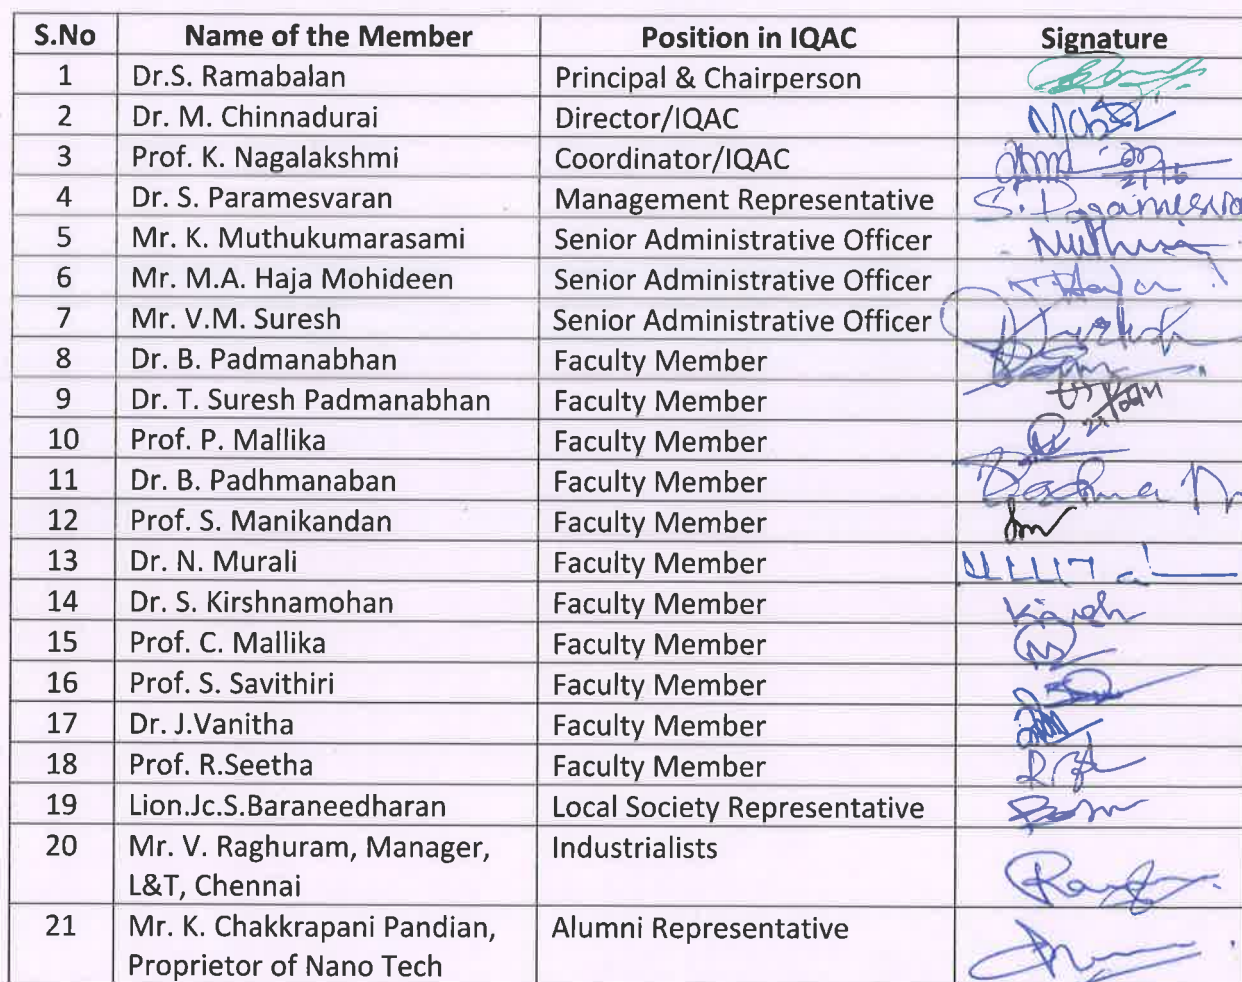 S.No Name of the Member Position in IQAC Signature
1 Dr.S. Ramabalan Principal & Chairperson
2 Dr. M. Chinnadurai Director/IQAC
3 Prof. K. Nagalakshmi Coordinator/IQAC
4 Dr. S. Paramesvaran Management Representative
5 Mr. K. Muthukumarasami Senior Administrative Officer
6 Mr. M.A. Haja Mohideen Senior Administrative Officer
7 Mr. V.M. Suresh Senior Administrative Officer
8 Dr. B. Padmanabhan Faculty Member
9 Dr. T. Suresh Padmanabhan Faculty Member
10 Prof. P. Mallika Faculty Member
11 Dr. B. Padhmanaban Faculty Member
12 Prof. S. Manikandan Faculty Member
13 Dr. N. Murali Faculty Member
14 Dr. S. Kirshnamohan Faculty Member
15 Prof. C. Mallika Faculty Member
16 Prof. S. Savithiri Faculty Member
17 Dr. J.Vanitha Faculty Member
18 Prof. R.Seetha Faculty Member
19 Lion.Jc.S.Baraneedharan Local Society Representative
20 Mr. V. Raghuram, Manager, Industrialists
L&T, Chennai
21 Mr. K. Chakkrapani Pandian, Alumni Representative
Proprietor of Nano Tech